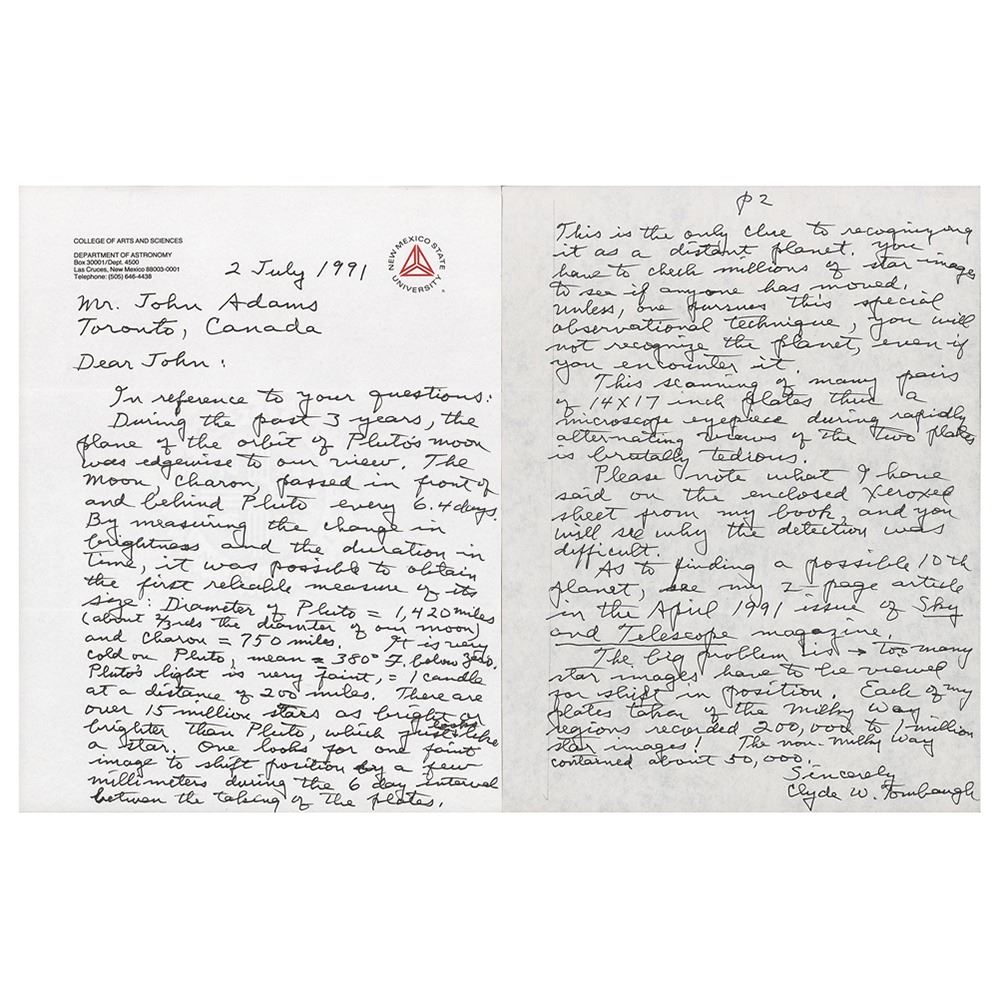 COLLEGE OF ARTS AND SCIENCES
DEPARTMENT OF ASTRONOMY
Box 30001/Dept. 4500
Las Cruces, New Mexico 88003-0001
Telephone: (505) 646-4438
NEW MEXICO STATE UNIVERSITY
2 July 1991
Mr. John Adams
Toronto, Canada
Dear John:
In reference to your questions:
During the past 3 years, the
plane of the orbit of Pluto's moon
was edgewise to our view. The
moon, Charon, passed in front of
and behind Pluto every 6.4 days.
By measuring the change in
brightness and the duration in
time, it was possible to obtain
the first reliable measure of its
size: Diameter of Pluto = 1,420 miles
(about 2/3rds the diameter of our moon)
and Charon = 750 miles. It is very
cold on Pluto, mean = 380° F. below zero.
Pluto's light is very faint, = 1 candle
at a distance of 200 miles. There are
over 15 million stars as bright or
brighter than Pluto, which just looks like
a star. One looks for one faint
image to shift position by a few
millimeters during the 6 day interval
between the taking of the plates.
p 2
This is the only clue to recognizing
it as a distant planet. You
have to check millions of star images
to see if any one has moved.
Unless, one pursues this special
observational technique, you will
not recognize the planet, even if
you encounter it.
This scanning of many pairs
of 14X17 inch plates thru a
microscope eyepiece during rapidly
alternating views of the two plates
is brutally tedious.
Please note what I have
said on the enclosed Xeroxed
sheet from my book, and you
will see why the detection was
difficult.
As to finding a possible 10th
planet, see my 2 page article
in the April 1991 issue of Sky
and Telescope magazine.
The big problem is → too many
star images have to be viewed
for shift in position. Each of my
plates taken of the Milky Way
regions recorded 200,000 to 1 million
star images! The non-Milky Way
contained about 50,000.
Sincerely
Clyde W. Tombaugh